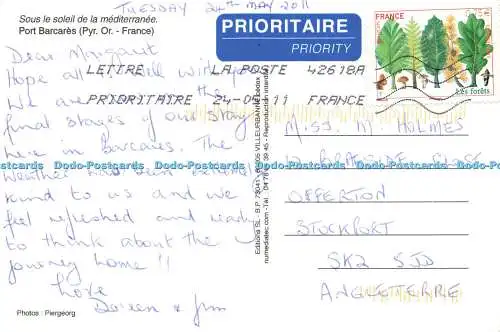 TUESDAY 24TH MAY 2011
Sous le soleil de la méditerranée.
Port Barcarès (Pyr. Or. - France)
PRIORITAIRE
PRIORITY
FRANCE
Les forêts
LETTRE LA POSTE 42618A
PRIORITAIRE 24-05-11 FRANCE
Dear Margaret
Hope all is well with you.
We are in the
final stages of our stay
here in Barcares. The
weather has been extremely
kind to us and we
feel refreshed and ready
to think about the
journey home !!
Love
Doreen & Jim
MISS M HOLMES
CLOSE
OFFERTON
STOCKPORT
SK2 5JD
ANGLETERRE
Editions SL - B.P. 73041 - 69605 VILLEURBANNE Cedex
Reproduction interdite
Photos : Piergeorg
Dodo-Postcards Dodo-Postcards Dodo-Postcards Dodo-Postcards Dodo-Postcards